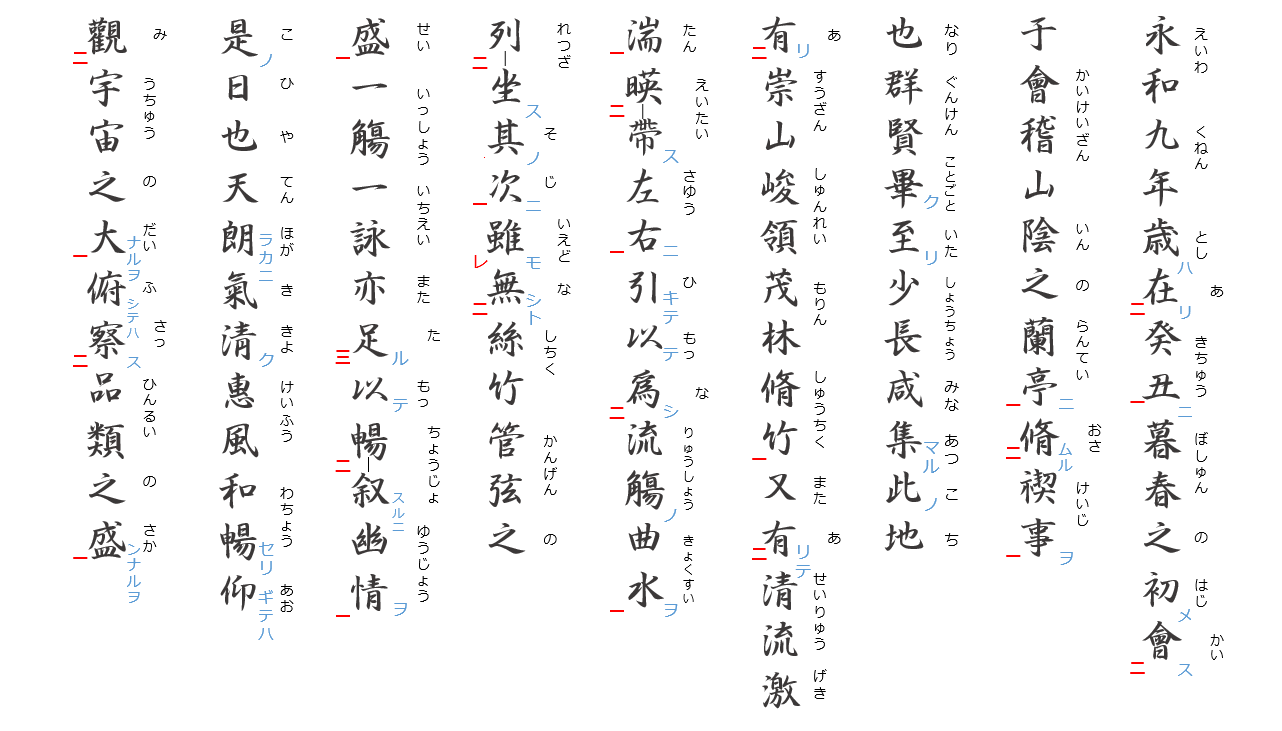 永和九年歳在癸丑暮春之初會
えいわ くねん とし あ きちゅう ぼしゅん の はじ かい
ハ リ ニ メ ス
二 一 二
于會稽山陰之蘭亭脩禊事
かいけいざん いん の らんてい おさ けいじ
ニ ムル ヲ
一 二 一
也群賢畢至少長咸集此地
なり ぐんけん ことごと いた しょうちょう みな あつ こ ち
ク リ マル ノ
有崇山峻領茂林脩竹又有清流激
あ すうざん しゅんれい もりん しゅうちく また あ せいりゅう げき
リ リテ
二 一 二
湍暎帶左右引以爲流觴曲水
たん えいたい さゆう ひ もっ な りゅうしょう きょくすい
ス ニ キテ テ シ ノ ヲ
一 二 一 二 一
列坐其次雖無絲竹管弦之
れつざ そ じ いえど な しちく かんげん の
ス ノ ニ モ シト
二 一 レ 二
盛一觴一詠亦足以暢叙幽情
せい いっしょう いちえい また た もっ ちょうじょ ゆうじょう
ル テ スルニ ヲ
一 三 二 一
是日也天朗氣清惠風和暢仰
こ ひ や てん ほが き きよ けいふう わちょう あお
ノ ラカニ ク セリ ギテハ
觀宇宙之大俯察品類之盛
み うちゅう の だい ふ さっ ひんるい の さか
ナルヲ シテハ ス ンナルヲ
二 一 二 一